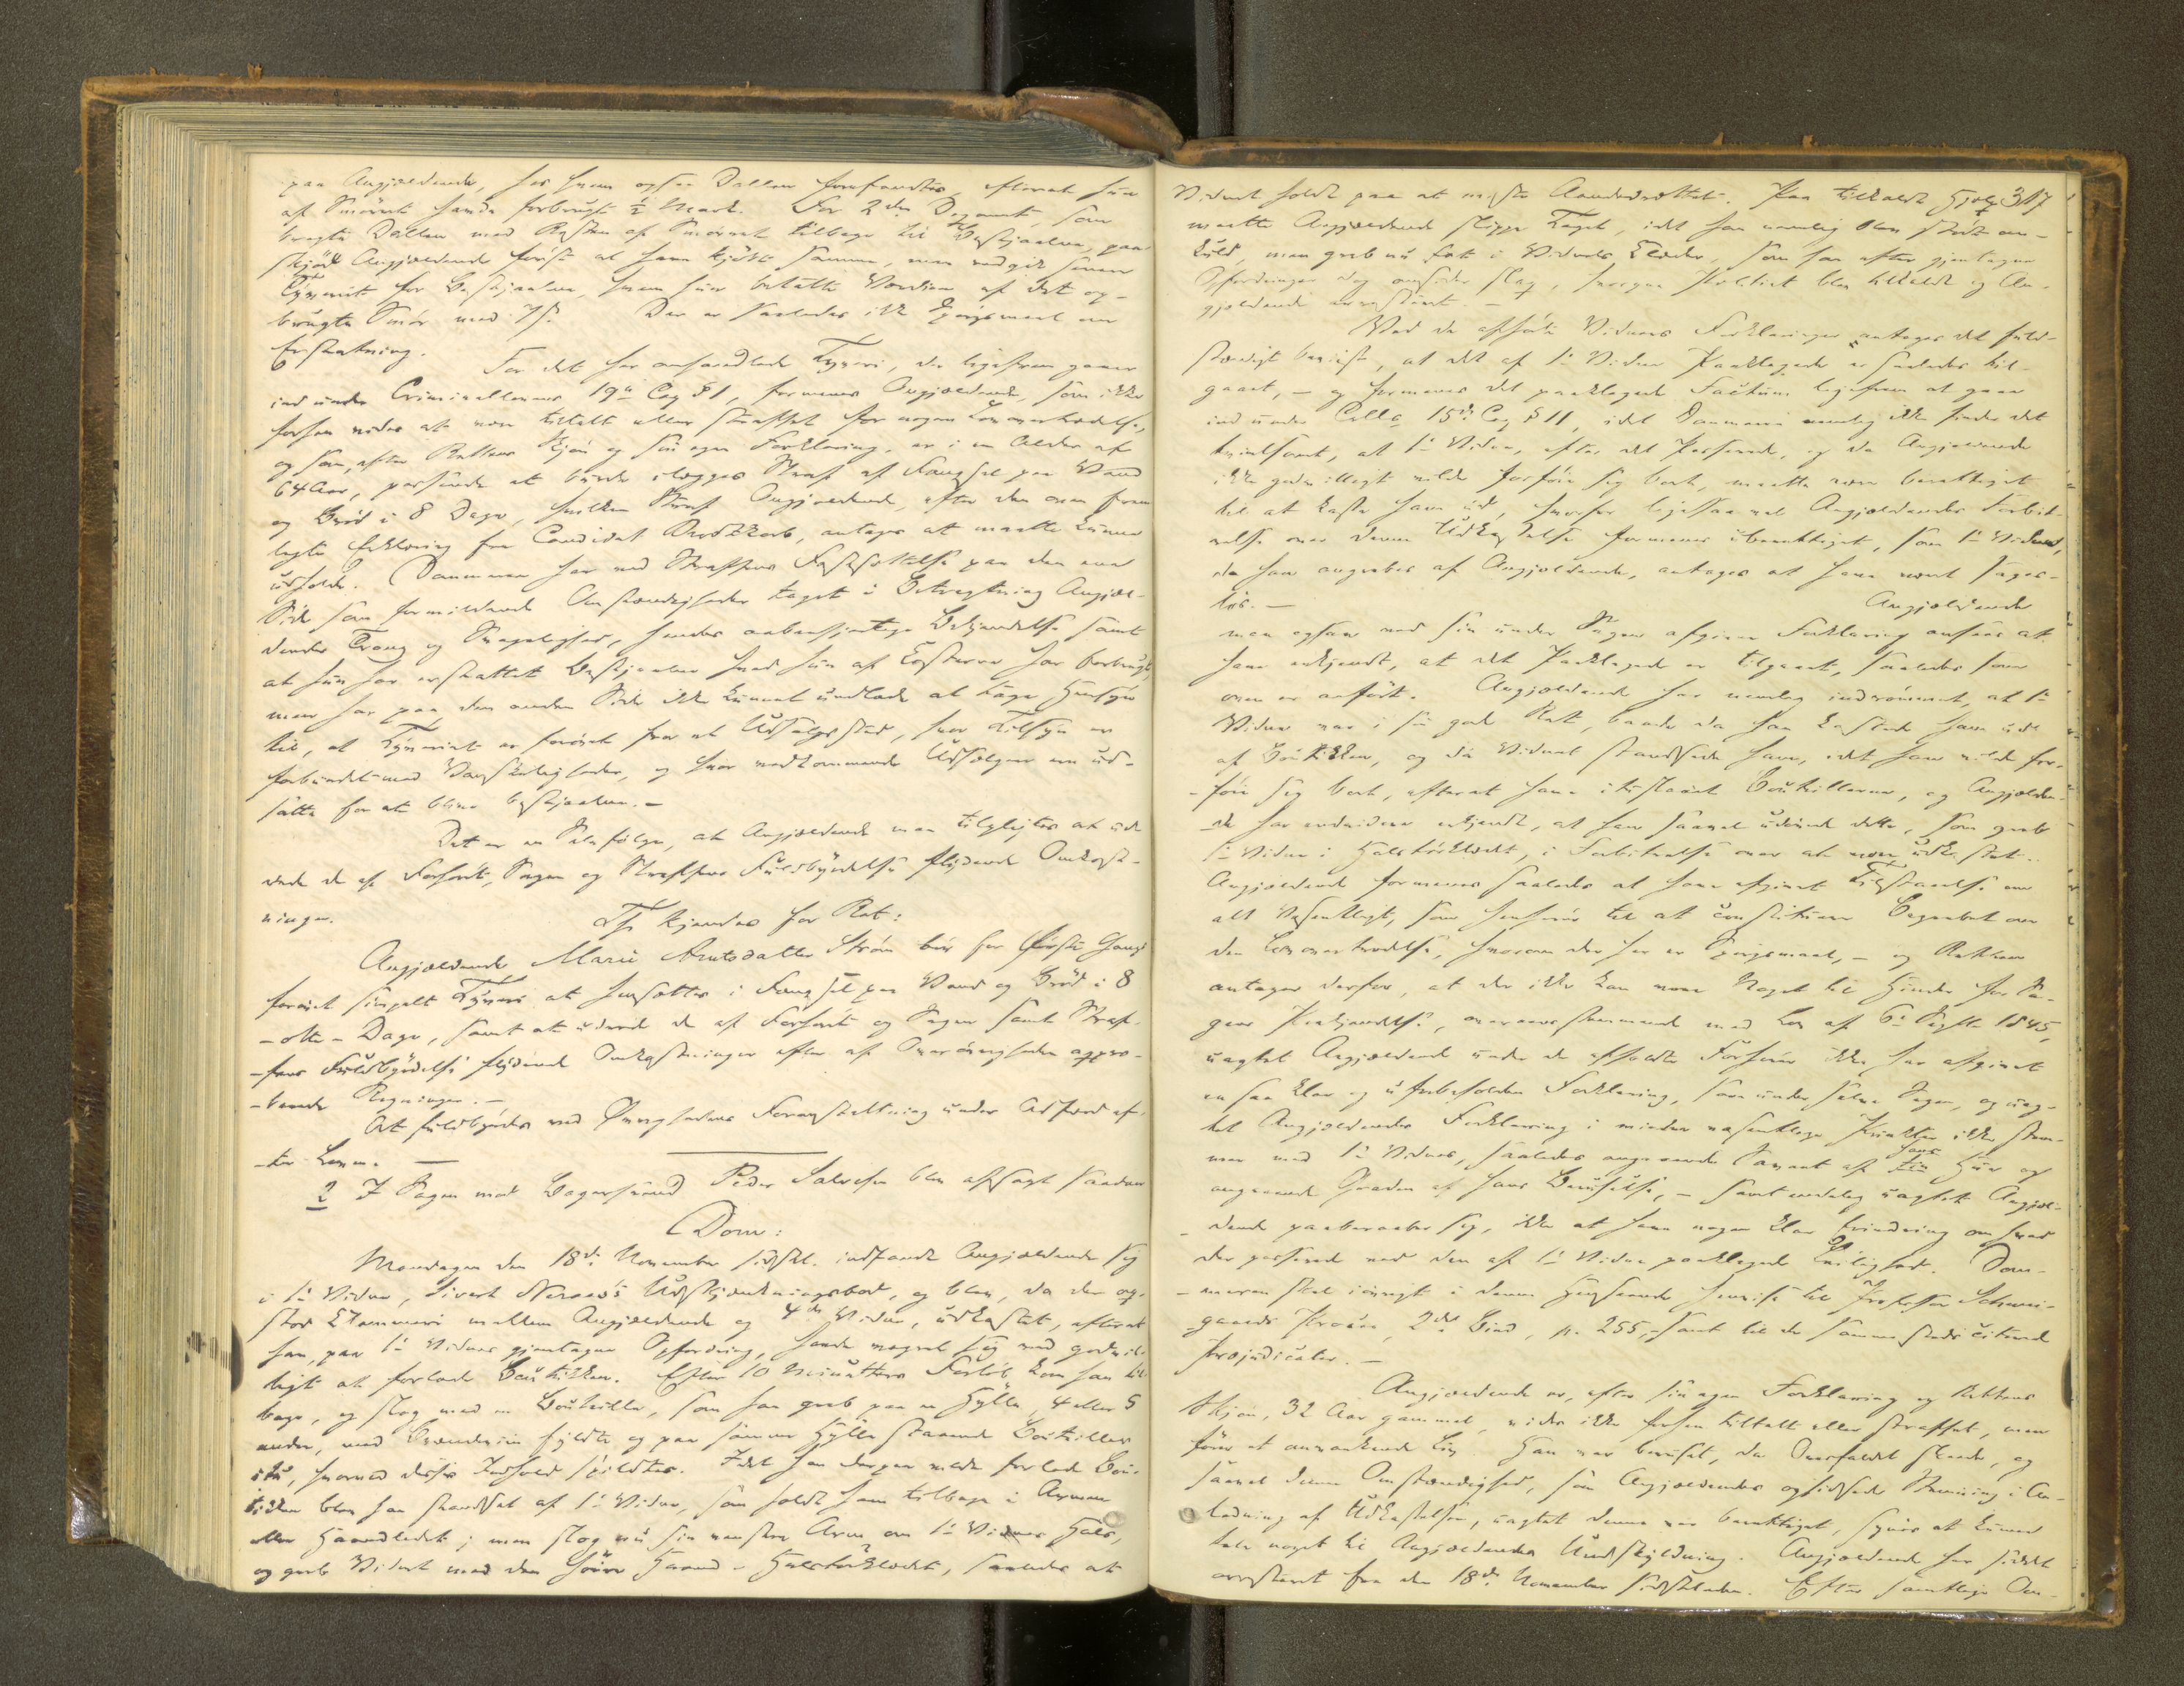 paa Angjældende, hos hvem ogsaa Dallen forefandtes, efterat hun
af Smørret havde forbrugt ½ Mark. For 2den Deponent, som
bragte Dallen med Resten af Smørret tilbage til Bestjaalne, paa-
skjød Angjældende først at have kjøbt Samme, men vedgik senere
Tyveriet for Bestjaalne, hvem hun betalte Værdien af det op-
brugte Smør med
Der er saaledes ikke Spørgsmaal om
Erstatning.
For det her omhandlede Tyveri, der ligefrem gaaer
ind under Criminallovens 19de Cap § 1, formenes Angjældende, som ikke
forhen vides at være tiltalt eller straffet for nogen Lovovertrædelse,
og som, efter Rettens Skjøn og sin egen Forklaring, er i en Alder af
64 Aar, passende at burde ilægges Straf af Fængsel paa Vand
og Brød i 8 Dage, hvilken Straf Angjældende, efter den oven frem-
lagte Erklæring fra Candidat, antages at maatte kunne
udholde. Dommeren har ved Straffens Fastsættelse paa den ene
Side som formildende Omstændigheder taget i Betragtning Angjæl-
dendes Trang og Svagelighed, hendes aabenhjertige Bekjendelse samt
at hun har erstattet Bestjaalne hvad hun af Kosterne har forbrugt,
men har paa den anden Side ikke kunnet undlade at tage Hensyn
til, at Tyveriet er forøvet fra et Udsalgssted, hvor Tilsyn er
forbundet med Vanskeligheder, og hvor vedkommende Udsælgere ere ud-
satte for at blive bestjaalne.-
Det er en Selvfølge, at Angjældende maa tilpligtes at ud-
rede de af Forhørs, Sagen og Straffens Fuldbyrdelse flydende Omkost-
ninger.
Thi kjendes for Ret:
Angjældende Marie Arntsdatter Strøm bør for første Gang
forøvet simpelt Tyveri at hensættes i Fængsel paa Vand og Brød i 8
- otte - Dage, samt at udrede de af Forhørs og Sagen samt Straf-
-fens Fuldbyrdelse flydende Omkostninger efter af Overøvrigheden appro-
-berede Regninger.-
At fuldbyrdes ved Øvrighedens Foranstaltning under Adfærd ef-
-ter Loven. -
2 I Sagen mod Bagersvend Peder Salvesen blev afsagt saadan
Dom:
Mandagen den 18de November sidstl. indfandt Angjældende sig
i 1ste Vidne, Sivert Udskjænkningsbod, og blev, da der op-
stod Klammeri mellem Angjældende og 4de Vidne, udkastet, efterat
han, paa 1ste Vidnes gjentagne Opfordring, havde vægret sig ved godvil-
ligt at forlade Boutikken. Efter 10 Minutters Forløb kom han til-
bage, og slog med en Bouteille, som han greb paa en Hylle, 4 eller 5
andre, med Brændeviin fyldte og paa samme Hylle staaende Bouteiller
itu, hvorved disses Indhold spildtes. Idet han derpaa vilde forlade Bou-
tikken blev han standset af 1ste Vidne, som holdt ham tilbage i Armen
eller Haandledet; men slog nu sin venstre Arm om 1ste Vidnes Hals,
og greb Vidnet med den høire Haand i Halstørklædet, saaledes at
317
Vidnet holdt paa at miste Aandedrættet. Paa tilkaldt Hjælp
maatte Angjældende slippe Taget, idet han nemlig blev stødt om-
kuld, men greb nu fat i Vidnets Klæder, som han efter gjentagne
Opfordringer dog omsider slap, hvorpaa Politiet blev tilkaldt og An-
gjældende arresteret.-
Ved de afhørte Vidners Forklaringer antages det fuld-
stændigt beviist, at det af 1ste Vidne Paaklagede er saaledes til-
gaaet, - og formenes det paaklagede Factum ligefrem at gaae
ind under Crll. 15de Cap § 11, idet Dommeren nemlig ikke finder det
tvivlsomt, at 1ste Vidne, efter det Passerede, og da Angjældende
ikke godvilligt vilde forføie sig bort, maatte være berettiget
til at kaste ham ud, hvorfor ligesaavel Angjældendes Forbit-
relse over denne Udkastelse formenes uberettiget, som 1ste Vidne,
da han angrebes af Angjældende, antages at have været sages-
løs.-
Angjældende
maa ogsaa ved sin under Sagen afgivne Forklaring ansees at
have erkjendt, at det Paaklagede er tilgaaet, saaledes som
oven er anført. Angjældende har nemlig indrømmet, at 1ste
Vidne var i sin gode Ret, baade da han kastede ham ud
af Boutikken, og da Vidnet standsede ham, idet han vilde for-
-føie sig bort, efterat have ituslaaet Bouteillerne, og Angjælden-
-de har endvidere erkjendt, at han saavel udøvede dette, som greb
1ste Vidne i Halstørklædet, i Forbitrelse over at være udkastet.
Angjældende formenes saaledes at have afgivet Tilstaaelse om
alt Væsentligt, som henhører til at constituere Begrebet om
den Lovovertrædelse, hvorom der her er Spørgsmaal, - og Retten
antager derfor, at der ikke kan være Noget til Hinder for Sa-
gens Paakjendelse, overeensstemmende med Lov af 6te Septbr 1845,
uagtet Angjældende under de afholdte Forhører ikke har afgivet
en saa klar og uforbeholden Forklaring, som under selve Sagen, og uag-
tet Angjældendes Forklaring i mindre væsentlige Punkter ikke stem-
mer med 1ste Vidnes, saaledes angaaende Savnet af hans Huue og
angaaende Graden af hans Beruselse, - samt endelig uagtet Angjæl-
-dende paaberaaber sig, ikke at have nogen klar Erindring om hvad
der passerede ved den af 1ste Vidne paaklagede Leilighed. Dom-
-meren skal iøvrigt i denne Henseende henvise til Professor Schwei-
gaards Proces, 2det Bind, p. 255, samt til de sammesteds citerede
Præjudicater.-
Angjældende er, efter sin egen Forklaring og Rettens
Skjøn, 32 Aar gammel, vides ikke forhen tiltalt eller straffet, men
fører et omvankende Liv. Han var beruset, da Overfaldet skede, og
saavel denne Omstændighed, som Angjældendes ophidsede Stemning i An-
ledning af Udkastelsen, uagtet denne var berettiget, synes at kunne
tale noget til Angjældendes Undskyldning. Angjældende har siddet
arresteret fra den 18de November sidstleden. Efter samtlige Om-